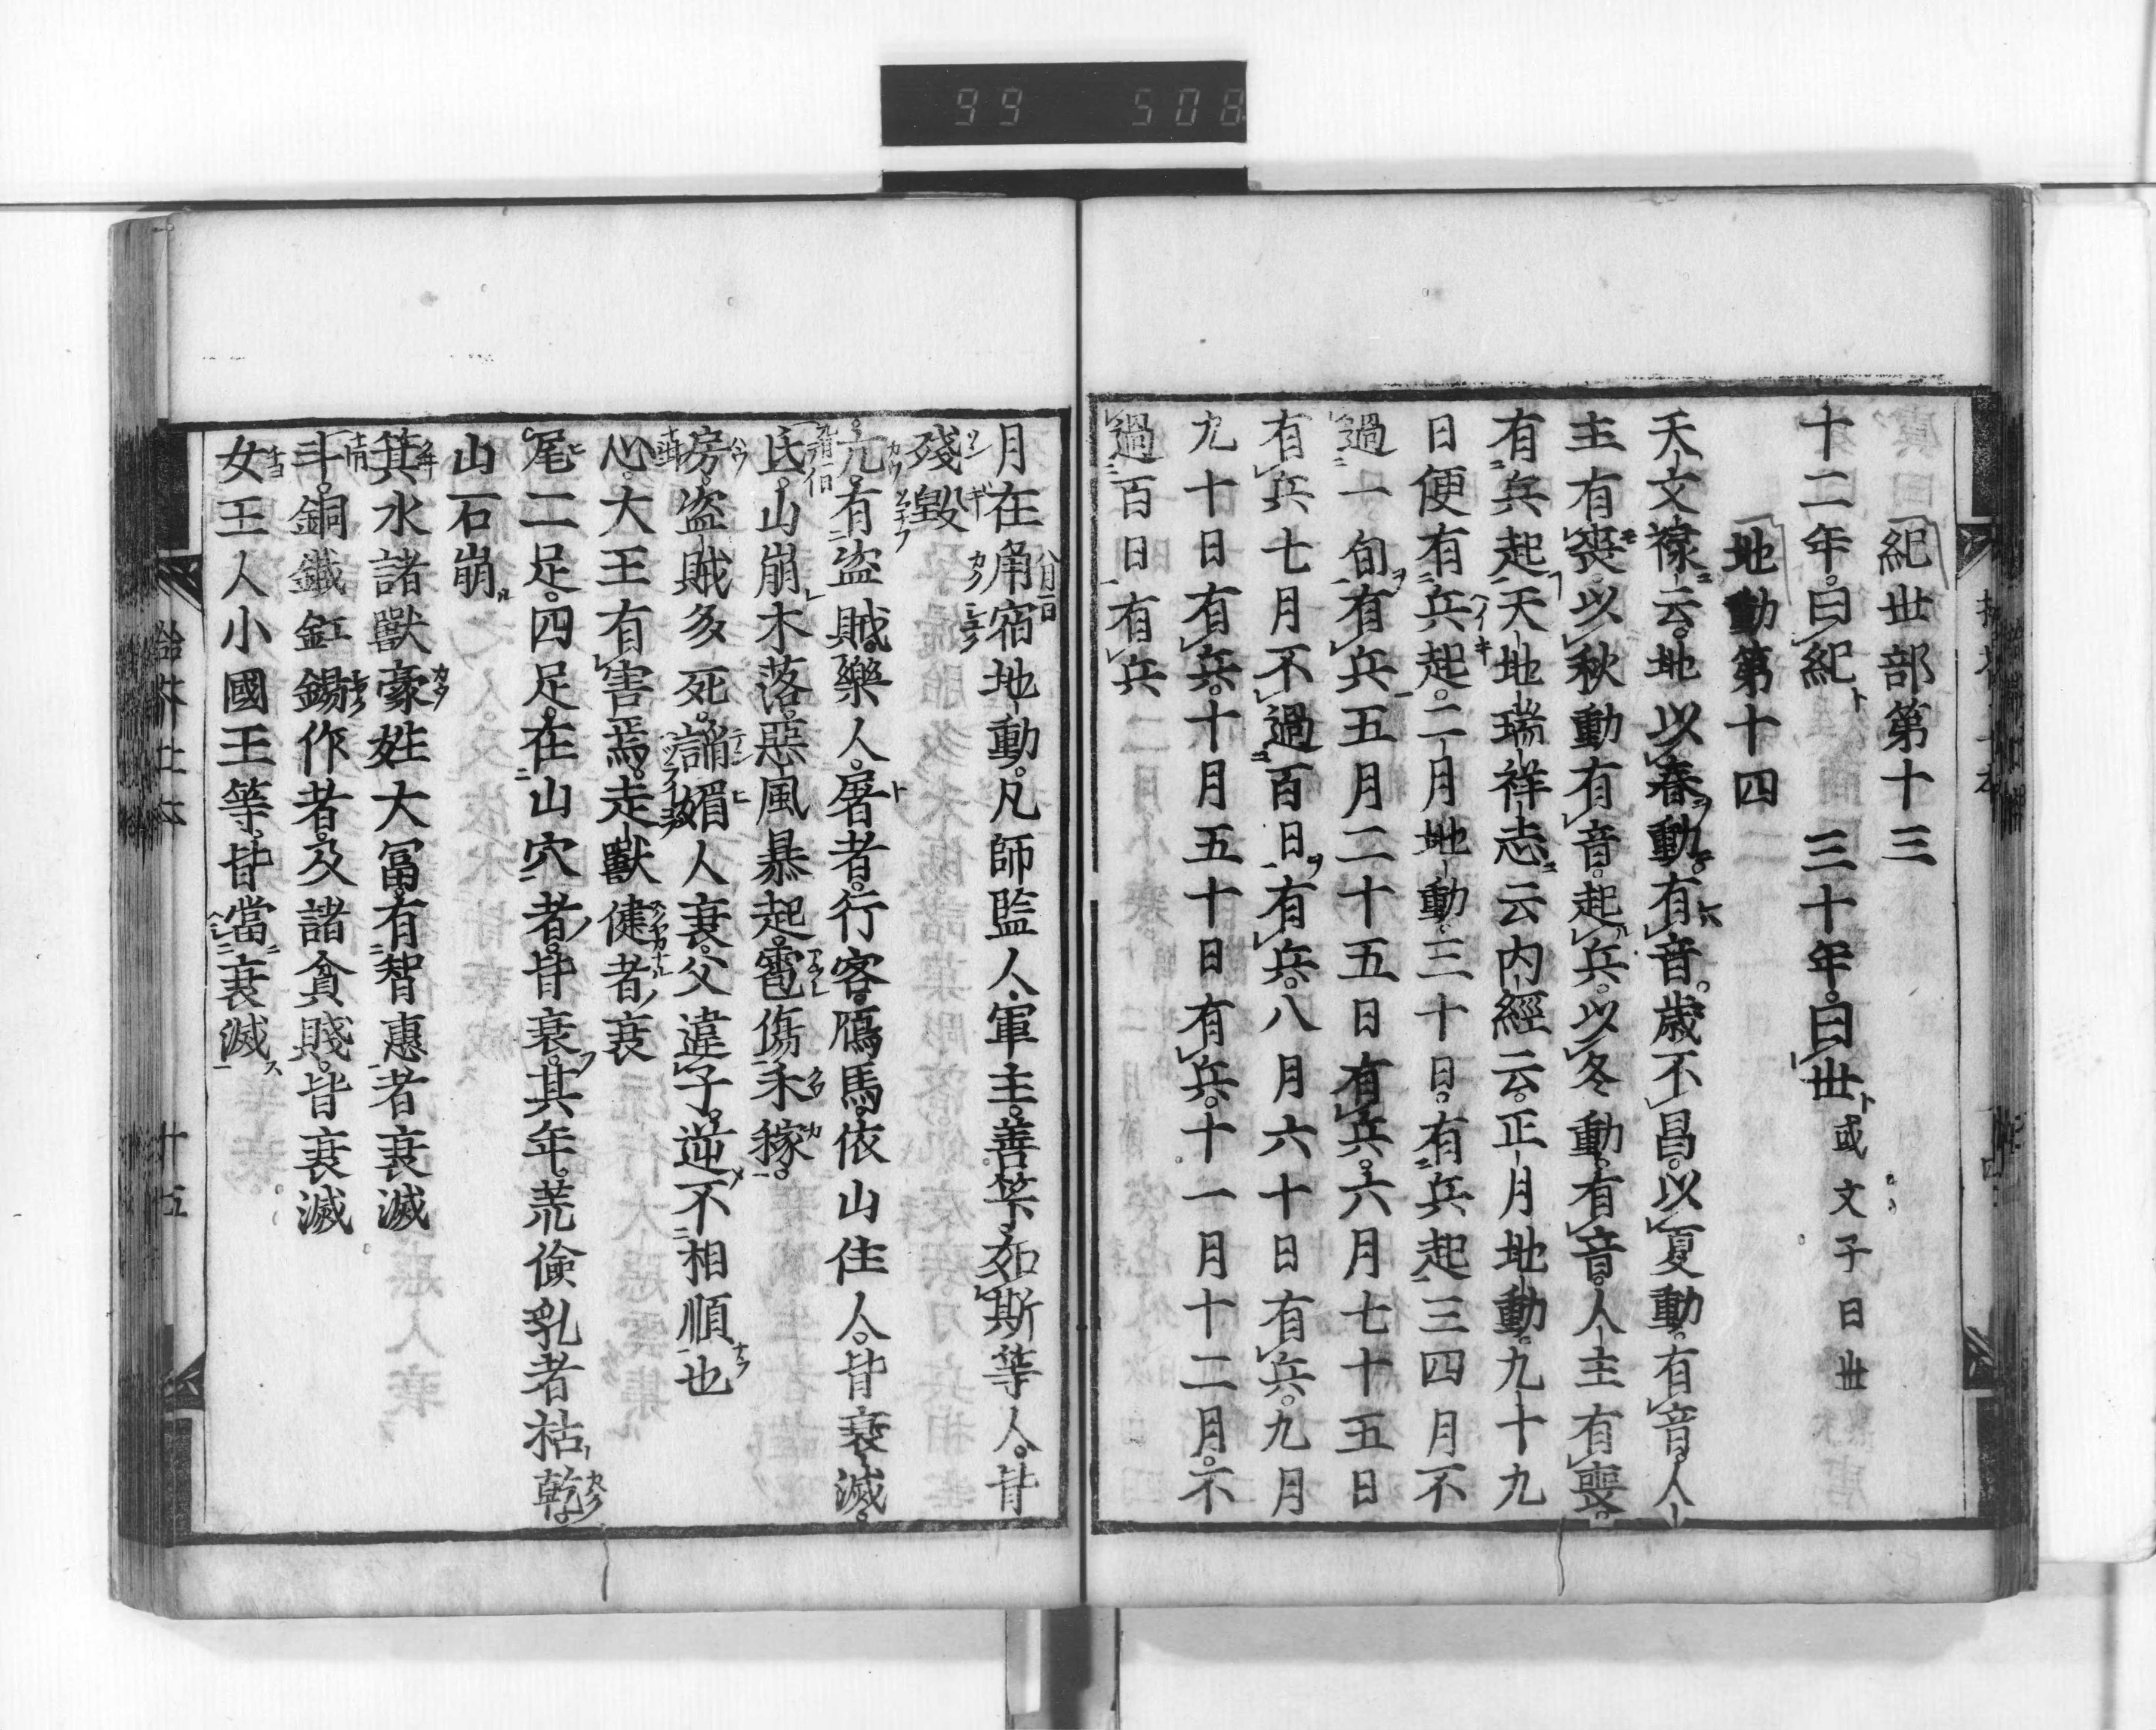 99 508
紀世部第十三
十二年。曰紀 三十年。曰世 或文子曰世
地動第十四
天文祿云。地以春動。有音。歳不昌。以夏動。有音。人
主有喪。以秋動有音。起兵。以冬動。有音。人主有喪。
有兵起天地瑞祥志云内經云。正月地動。九十九
日便有兵起。二月地動。三十日。有兵起三四月不
過一旬有兵五月二十五日有兵。六月七十五日
有兵七月不過百日有兵。八月六十日有兵。九月
九十日有兵。十月五十日有兵。十一月十二月。不
過百日有兵
月在角宿地動。凡師監人軍主。善筞。如斯等人。皆
殘毀
亢。有盗賊。樂人。屠者。行客。鴈馬。依山住人。皆衰滅。
氐。山崩木落。惡風暴起。雹傷禾稼。
房。盗賊多死。諂媚人衰。父違子。逆不相順也
心。大王有害焉。走獸健者衰
尾二足。四足。在山穴者。皆衰。其年荒儉乳者枯乾。
山石崩
箕水諸獸豪姓大冨有智惠者衰滅
斗。銅鐵釭錫作者。及諸貧賤。皆衰滅
女王人小國王等。皆當衰滅
十五